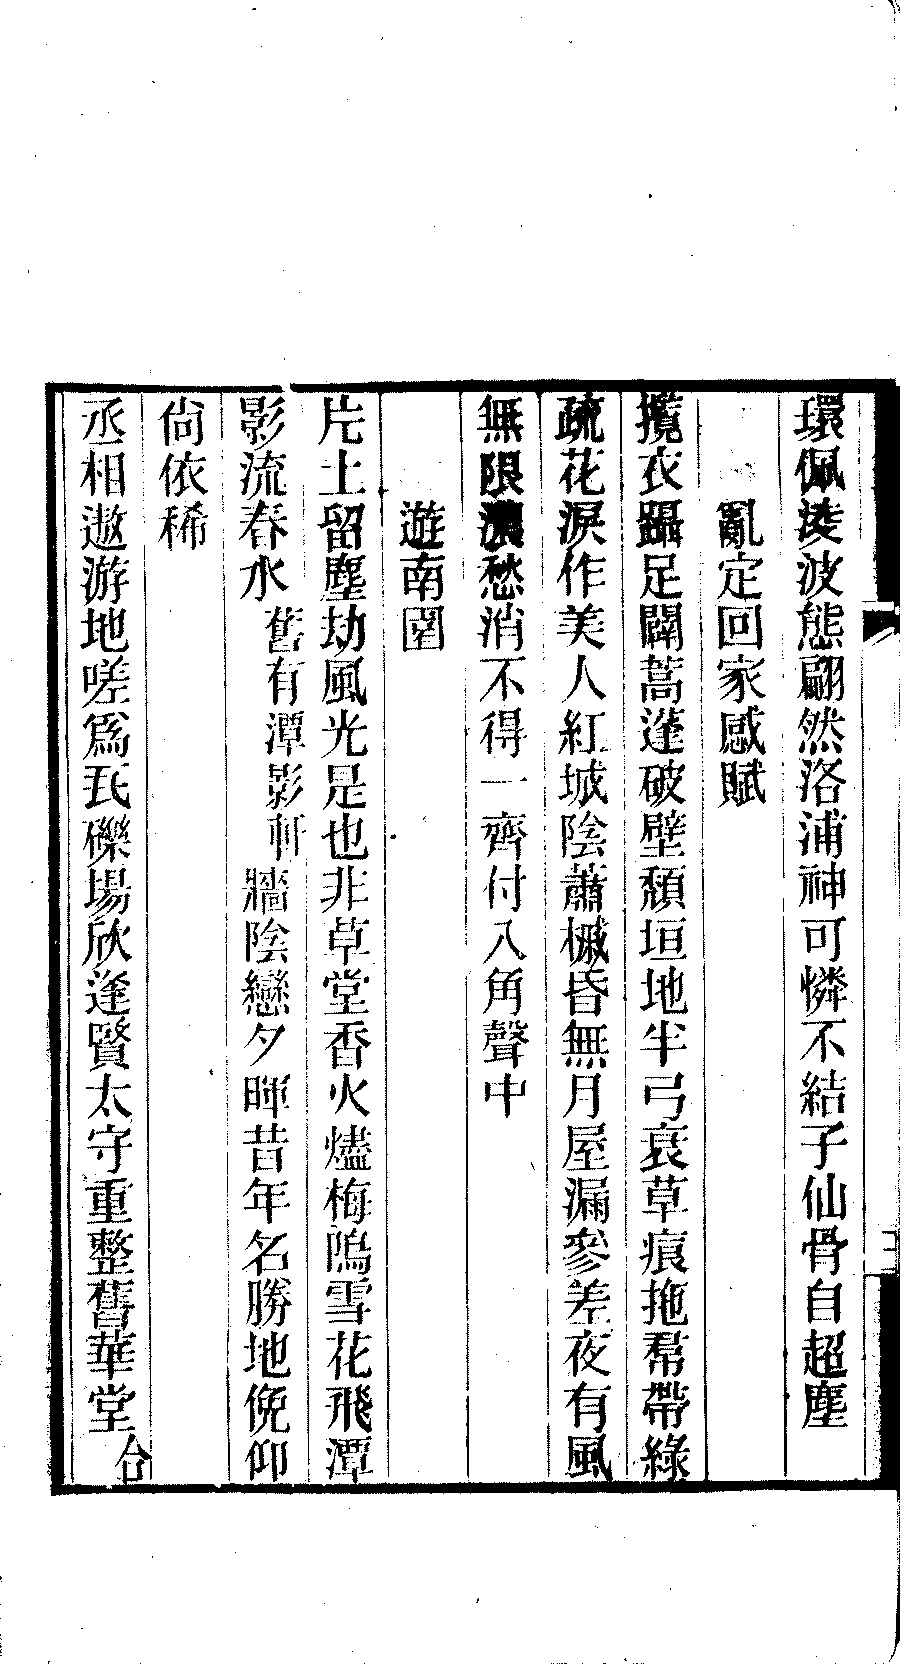 環佩淩波態翩然洛浦神可憐不結子仙骨自超塵
亂定回家感賦
攬衣躡足闢蒿蓬破壁頹垣地半弓衰草痕拖帬帶綠
疏花淚作美人紅城陰蕭槭昏無月屋漏參差夜有風
無限濃愁消不得一齊付入角聲中
遊南園
片土留塵劫風光是也非草堂香火燼梅隖雪花飛潭
影流春水舊有潭影軒牆陰戀夕暉昔年名勝地俛仰
尙依稀
丞相遨游地嗟爲瓦礫場欣逢賢太守重整舊華堂合